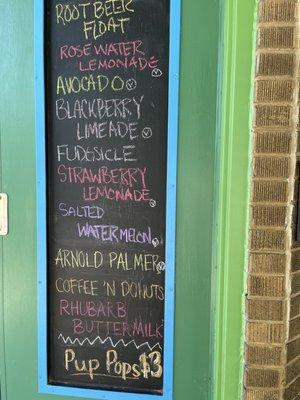 ROOT BEER
FLOAT
ROSE WATER
LEMONADE V
AVOCADO V
BLACKBERRY
LIMEADE V
FUDGSICLE
STRAWBERRY
LEMONADE V
SALTED
WATERMELON V
ARNOLD PALMER V
COFFEE 'N DONUTS
RHUBARB
BUTTERMILK
PUP POPS $3